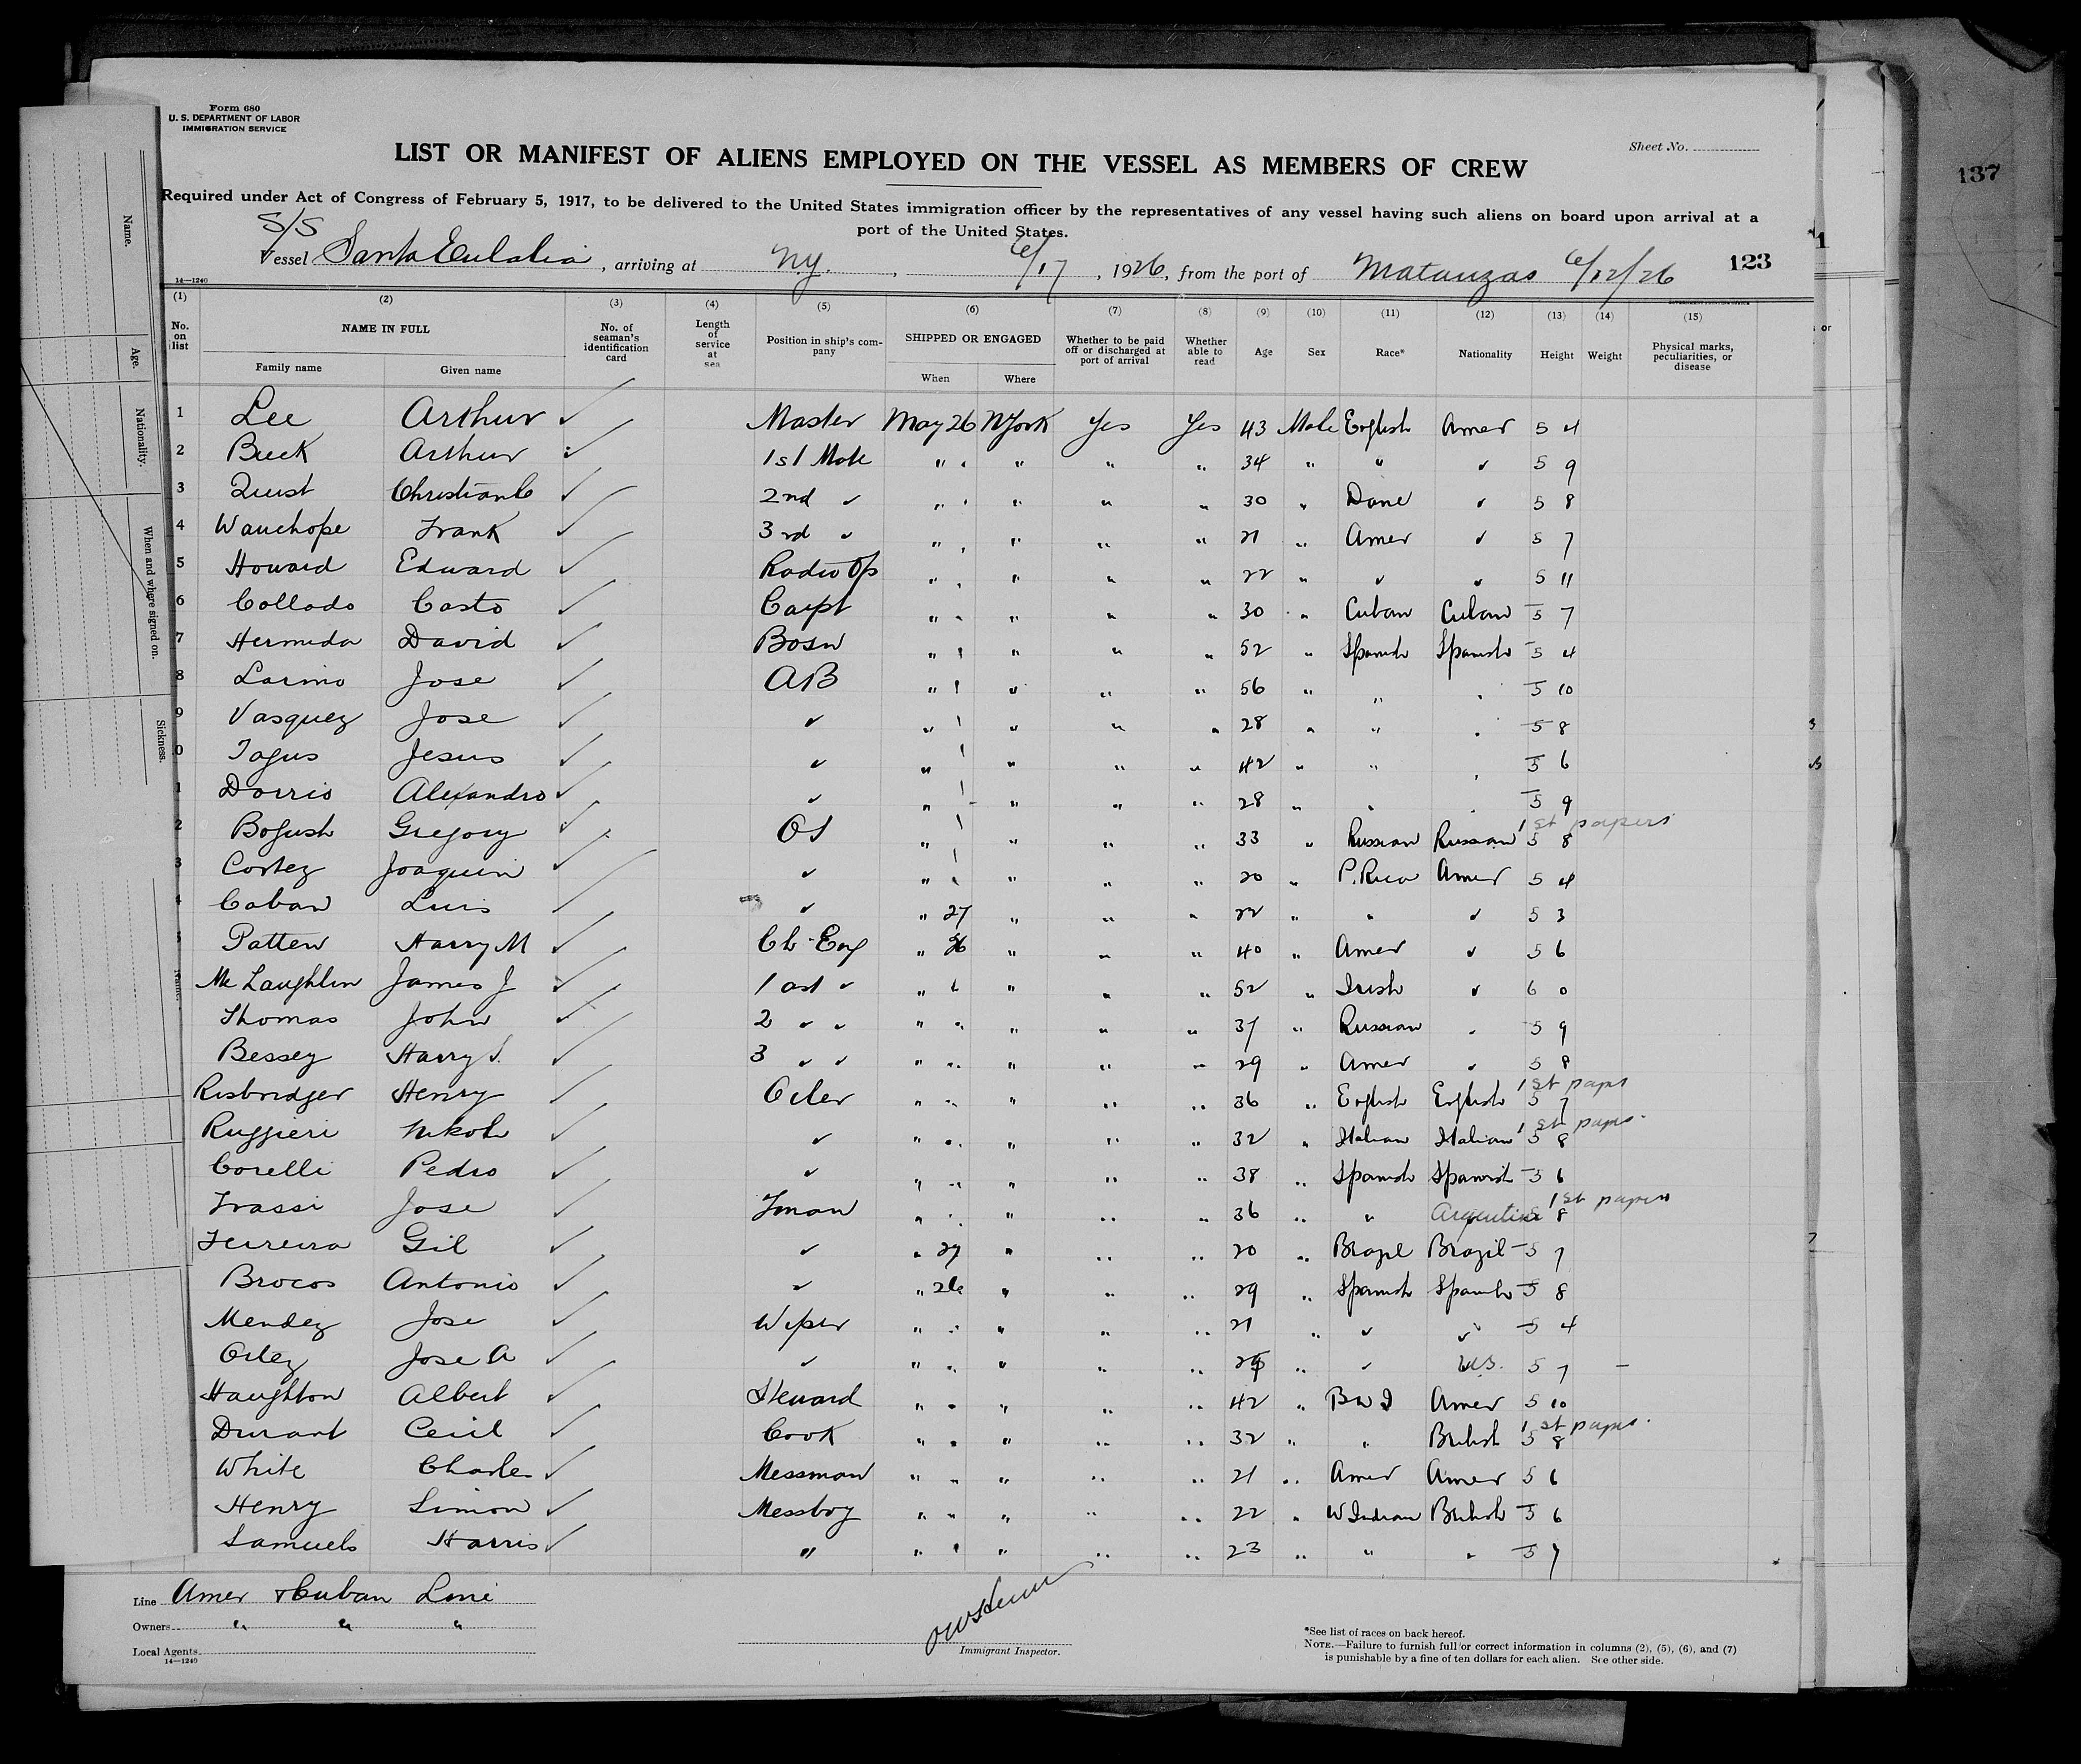 Form 680
U. S. DEPARTMENT OF LABOR
IMMIGRATION SERVICE
Sheet No.
LIST OR MANIFEST OF ALIENS EMPLOYED ON THE VESSEL AS MEMBERS OF CREW
137
Required under Act of Congress of February 5, 1917, to be delivered to the United States immigration officer by the representatives of any vessel having such aliens on board upon arrival at a
port of the United States.
S/S
Vessel Santa Eulalia, arriving at N.Y., 6/17, 1926, from the port of Matanzas 6/12/26 123
14—1240
(1) (2) (3) (4) (5) (6) (7) (8) (9) (10) (11) (12) (13) (14) (15)
No. on list NAME IN FULL No. of seaman's identification card Length of service at sea Position in ship's company SHIPPED OR ENGAGED Whether to be paid off or discharged at port of arrival Whether able to read Age Sex Race* Nationality Height Weight Physical marks, peculiarities, or disease
Family name Given name When Where
Name. Age. Nationality. When and where signed on. Sickness.
1 Lee Arthur ✓ Master May 26 N York Yes Yes 43 Male English Amer 5 4
2 Buck Arthur ✓ 1st Mate " " " " " 34 " " ✓ 5 9
3 Quist Christian C ✓ 2nd ✓ " " " " " 30 " Dane ✓ 5 8
4 Wauchope Frank ✓ 3rd ✓ " " " " " 21 " Amer ✓ 5 7
5 Howard Edward ✓ Radio Op " " " " " 22 " ✓ ✓ 5 11
6 Collado Casto ✓ Carpt " " " " " 30 " Cuban Cuban 5 7
7 Hermida David ✓ Bosn " " " " " 52 " Spanish Spanish 5 4
8 Larino Jose ✓ AB " " " " " 56 " " " 5 10
9 Vasquez Jose ✓ ✓ " " " " " 28 " " " 5 8
0 Tagus Jesus ✓ ✓ " " " " " 42 " " " 5 6
1 Dorrio Alexandro ✓ ✓ " " " " " 28 " " " 5 9
2 Bogush Gregory ✓ OS " " " " " 33 " Russian Russian 5 8 1st papers
3 Cortez Joaquin ✓ ✓ " " " " " 20 " P. Rico Amer 5 4
4 Caban Luis ✓ ✓ " 27 " " " 22 " " ✓ 5 3
5 Patten Harry M ✓ Ch Eng " 26 " " " 40 " Amer ✓ 5 6
McLaughlin James J ✓ 1 ast ✓ " " " " " 52 " Irish ✓ 6 0
Thomas John ✓ 2 ✓ ✓ " " " " " 37 " Russian " 5 9
Bessey Harry S. ✓ 3 ✓ ✓ " " " " " 29 " Amer ✓ 5 8
Risbridger Henry ✓ Oiler " " " " " 36 " English English 5 7 1st paprs
Ruggieri Nikola ✓ ✓ " " " " " 32 " Italian Italian 5 8 1st paprs.
Corelli Pedro ✓ ✓ " " " " " 38 " Spanish Spanish 5 6
Frassi Jose ✓ Fman " " " " " 36 " " Argentine 5 8 1st papers
Ferreira Gil ✓ ✓ " 27 " " " 20 " Brazil Brazil 5 7
Brocos Antonio ✓ ✓ " 26 " " " 29 " Spanish Spanish 5 8
Mendez Jose ✓ Wiper " " " " " 21 " ✓ ✓ 5 4
Jose A ✓ ✓ " " " " " " ✓ U.S. 5 7 –
Haughton Albert ✓ Steward " " " " " 42 " B W I Amer 5 10
Durant Cecil ✓ Cook " " " " " 32 " " British 5 8 1st paprs.
White Charles ✓ Messman " " " " " 21 " Amer Amer 5 6
Henry Simon ✓ Messboy " " " " " 22 " W Indian British 5 6
Samuels Harris ✓ " " " " " " 23 " " " 5 7
Line Amer & Cuban Line
Owners " " "
Local Agents
14—1240
Immigrant Inspector.
*See list of races on back hereof.
NOTE.—Failure to furnish full or correct information in columns (2), (5), (6), and (7)
is punishable by a fine of ten dollars for each alien. See other side.